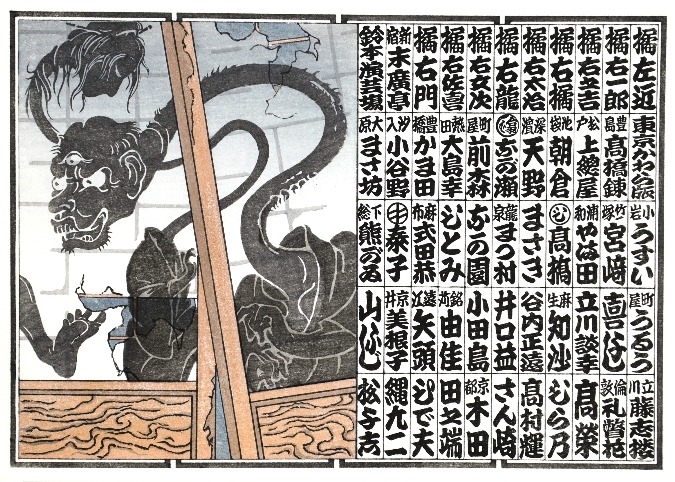 橘左近
東京かわら版
小岩 うすい
町屋 うろう
立川 藤志楼
橘右一郎
豊島 高橋錬
竹塚 宮﨑
橘右圭吉
松戸 上總屋
浦和 やは田
立川談幸
高榮
橘右橘
池袋 朝倉
高橋
麻生 知沙
むら乃
橘右太治
深濱 天野
まさき
谷内正遠
高村輝
橘右龍
龍泉 まつ村
井口益
さん崎
橘右女次
町屋 前森
小田島
京都 木田
橘右佐喜
熱田 大島幸
しとみ
銘苅 由佳
田圭端
橘右門
豊橋 かま田
麻布 式田恭
遠江 矢頭
ひで夫
新宿 末廣亭
汐入 小谷野
泰子
京井 美根子
縄九二
鈴本演芸場
大原 まさ坊
下総 熊がゐ
松与志